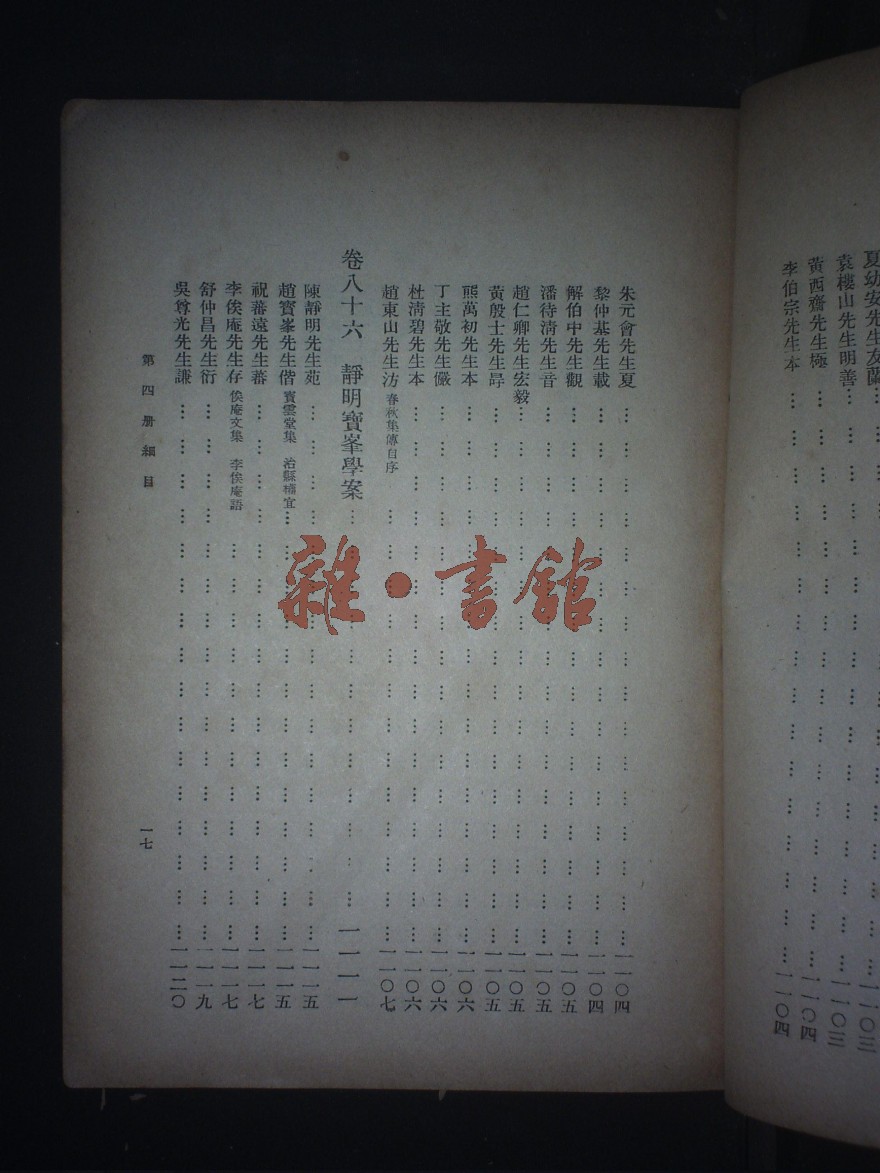 夏幼安先生友蘭……一一〇三
袁樓山先生明善……一一〇三
黃西齋先生極……一一〇四
李伯宗先生本……一一〇四
朱元會先生夏……一一〇四
黎仲基先生載……一一〇四
解伯中先生觀……一一〇五
潘待清先生音……一一〇五
趙仁卿先生宏毅……一一〇五
黃殷士先生冔……一一〇五
熊萬初先生本……一一〇六
丁主敬先生儼……一一〇六
杜清碧先生本……一一〇六
趙東山先生汸 春秋集傳自序……一一〇七
卷八十六 靜明寶峯學案……一一一一
陳靜明先生苑……一一一五
趙寶峯先生偕 寶雲堂集 治縣權宜……一一一五
祝蕃遠先生蕃……一一一七
李俟庵先生存 俟庵文集 李俟庵語……一一一七
舒仲昌先生衍……一一一九
吳尊光先生謙……一一二〇
第四册細目
一七
雜·書館